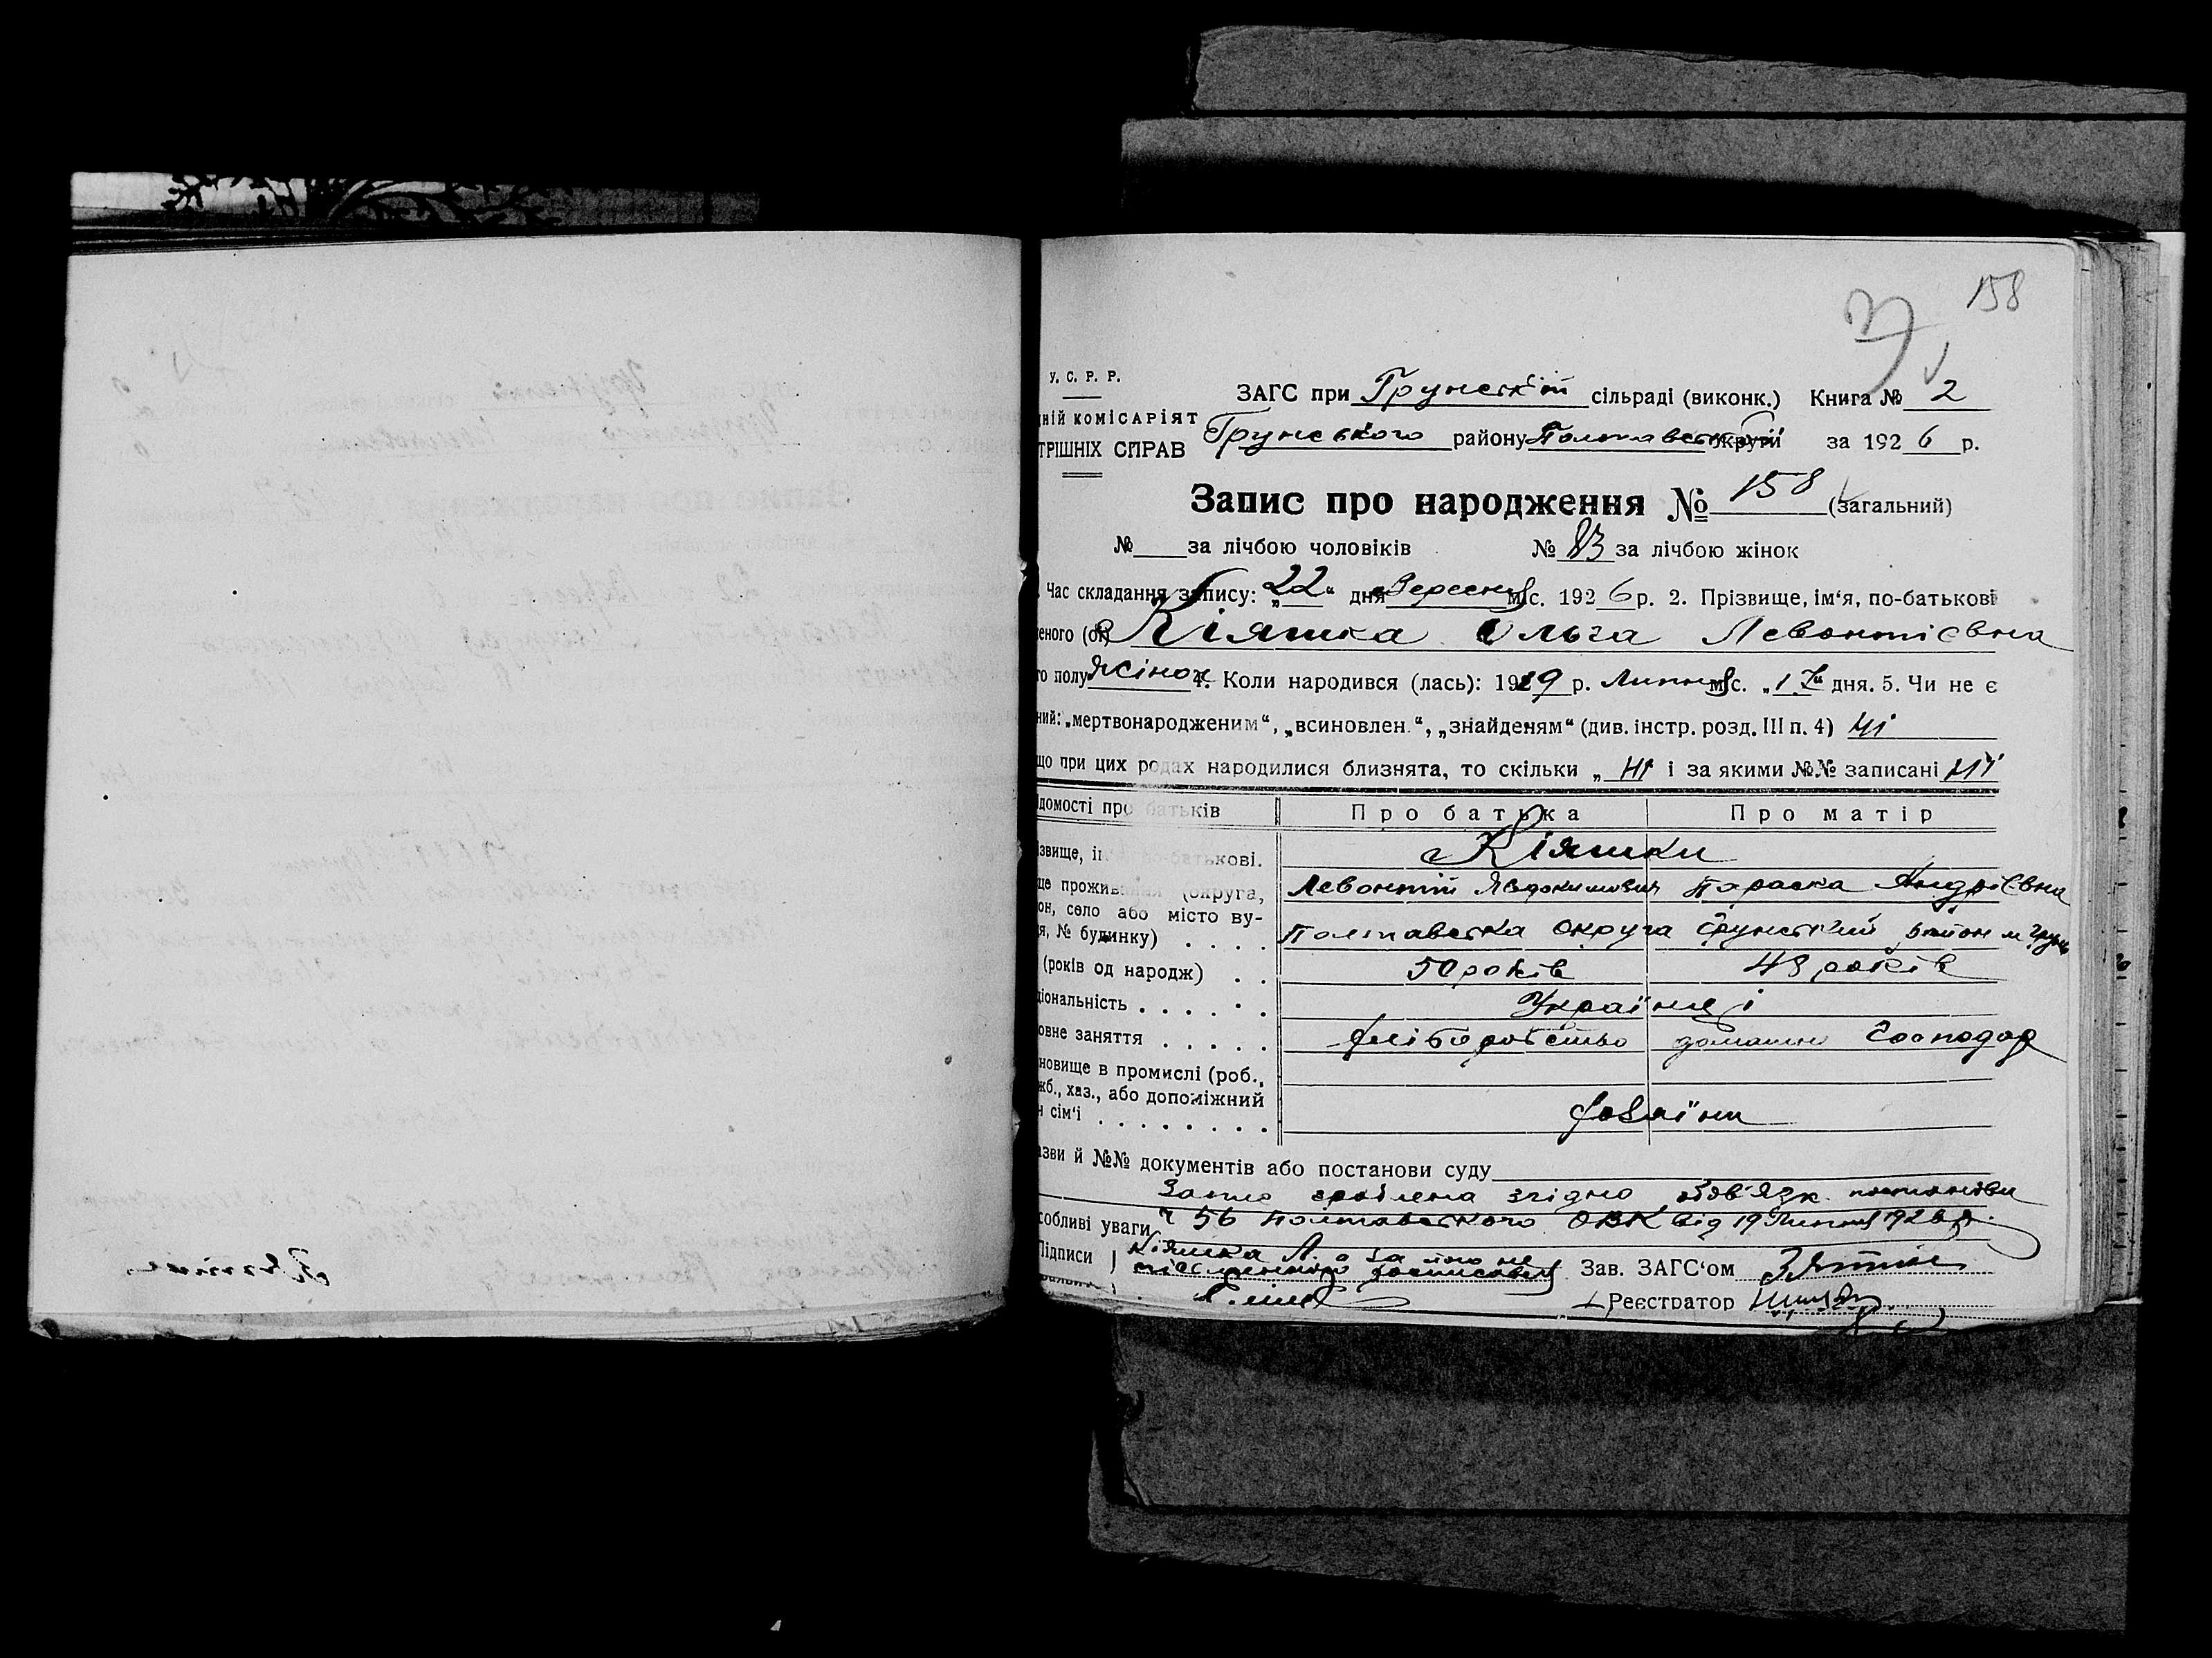 158
У. С. Р. Р.
ЗАГС при Грунській сільраді (виконк.) Книга № 2
дній комісаріят
Грунського району Полтавської округи за 1926 р.
трішніх справ
Запис про народження № 158 (загальний)
№ за лічбою чоловіків № 83 за лічбою жінок
Час складання запису: „22“ дня Вересня міс. 1926 р. 2. Прізвище, ім‘я, по-батькові
еного (ої) Кіяшка Ольга Левонтієвна
го полу Жіноч. 4. Коли народився (лась): 1919 р. Липня міс. „17“ дня. 5. Чи не є
ний: „мертвонародженим“, „всиновлен.“, „знайденям“ (див. інстр. розд. III п. 4) Ні
що при цих родах народилися близнята, то скільки „ Ні і за якими №№ записані Ні
ідомості про батьків Про батька Про матір
ізвище, ім по-батькові. Кіяшки
Левонтій Явдокимович Параска Андрієвна
ще проживання (округа,
он, село або місто ву-
я, № будинку) . . . . Полтавська округа Грунський район м Грунь
(років од народж) . . 50 років 48 років
ціональність . . . . . . Українці
овне заняття . . . . . хліборобство домашнє господар
новище в промислі (роб.,
жб., хаз., або допоміжний
н сім‘ї . . . . . . . . хазяїни
азви й №№ документів або постанови суду
Запис зроблена згідно обов'язк. постанови
собливі уваги ч 56 Полтавського ОВК від 19 Липня 1926 р.
Підписи Кіяшка Л. а за його не
письменного росписався Зав. ЗАГС‘ом
Реєстратор